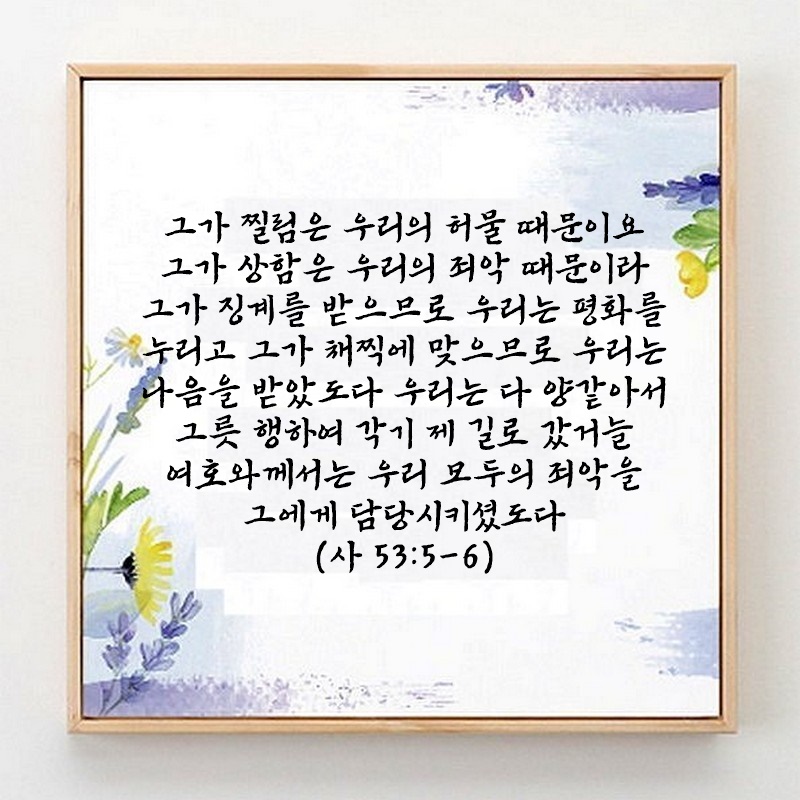 그가 찔럼은 우리의 허물 때문이요
그가 상함은 우리의 죄악 때문이라
그가 징계를 받으므로 우리는 평화를
누리고 그가 채찍에 맞으므로 우리는
나음을 받았도다 우리는 다 양같아서
그릇 행하여 각기 제 길로 갔거늘
여호와께서는 우리 모두의 죄악을
그에게 담당시키셨도다
(사 53:5-6)